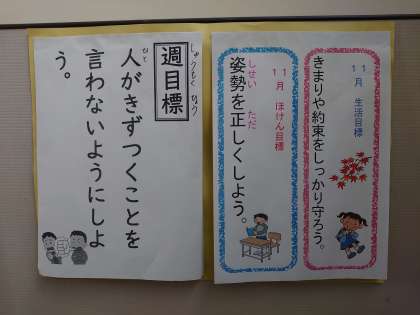 11月 生活目標
きまりや約束をしっかり守ろう。
11月 ほけん目標
しせい ただ
姿勢を正しくしよう。
しゅうもくひょう
週目標
ひと
人がきずつくことを
言わないようにしよ
う。